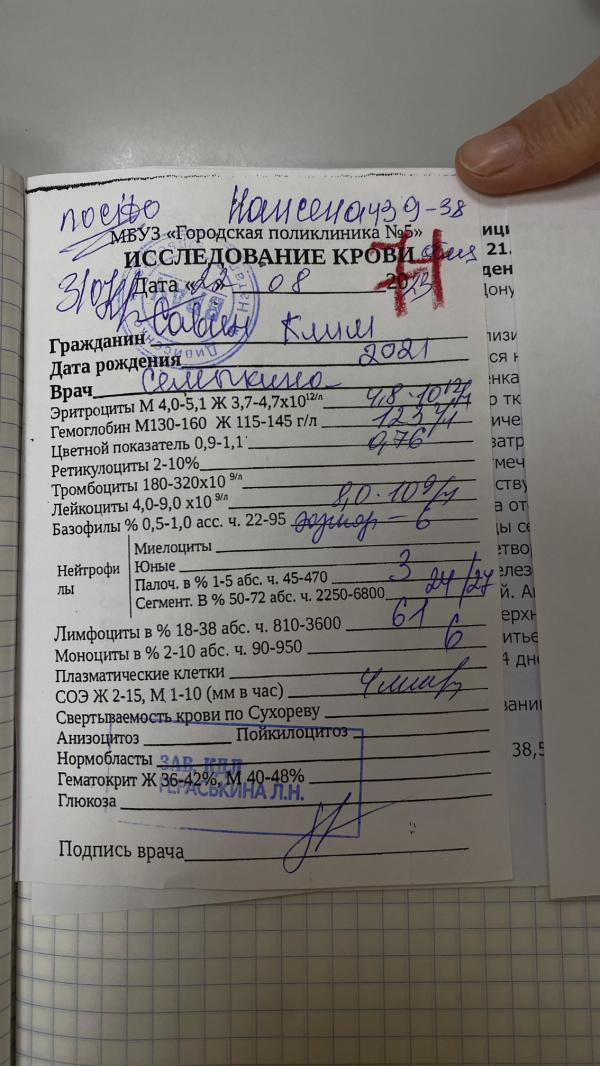 Нансена 439-38
МБУЗ «Городская поликлиника №5»
ИССЛЕДОВАНИЕ КРОВИ
Дата «22» 08 2023
Н
Гражданин Савин Клим
Дата рождения 2021
Врач Семыкина
Эритроциты М 4,0-5,1 Ж 3,7-4,7х10 12/л 4,8·10 12/л
Гемоглобин М130-160 Ж 115-145 г/л 123 г/л
Цветной показатель 0,9-1,1 0,76
Ретикулоциты 2-10%
Тромбоциты 180-320х10 9/л
Лейкоциты 4,0-9,0 х10 9/л 8,0·10 9/л
Базофилы % 0,5-1,0 асс. ч. 22-95 эозиноф – 6
Нейтрофи
лы
Миелоциты
Юные
Палоч. в % 1-5 абс. ч. 45-470 3
Сегмент. В % 50-72 абс. ч. 2250-6800 24/27
Лимфоциты в % 18-38 абс. ч. 810-3600 61
Моноциты в % 2-10 абс. ч. 90-950 6
Плазматические клетки
СОЭ Ж 2-15, М 1-10 (мм в час) 4 мм/ч
Свертываемость крови по Сухореву
Анизоцитоз Пойкилоцитоз
Нормобласты
ЗАВ. КДЛ
Гематокрит Ж 36-42%, М 40-48%
ГЕРАСЬКИНА Л.Н.
Глюкоза
Подпись врача
38,5